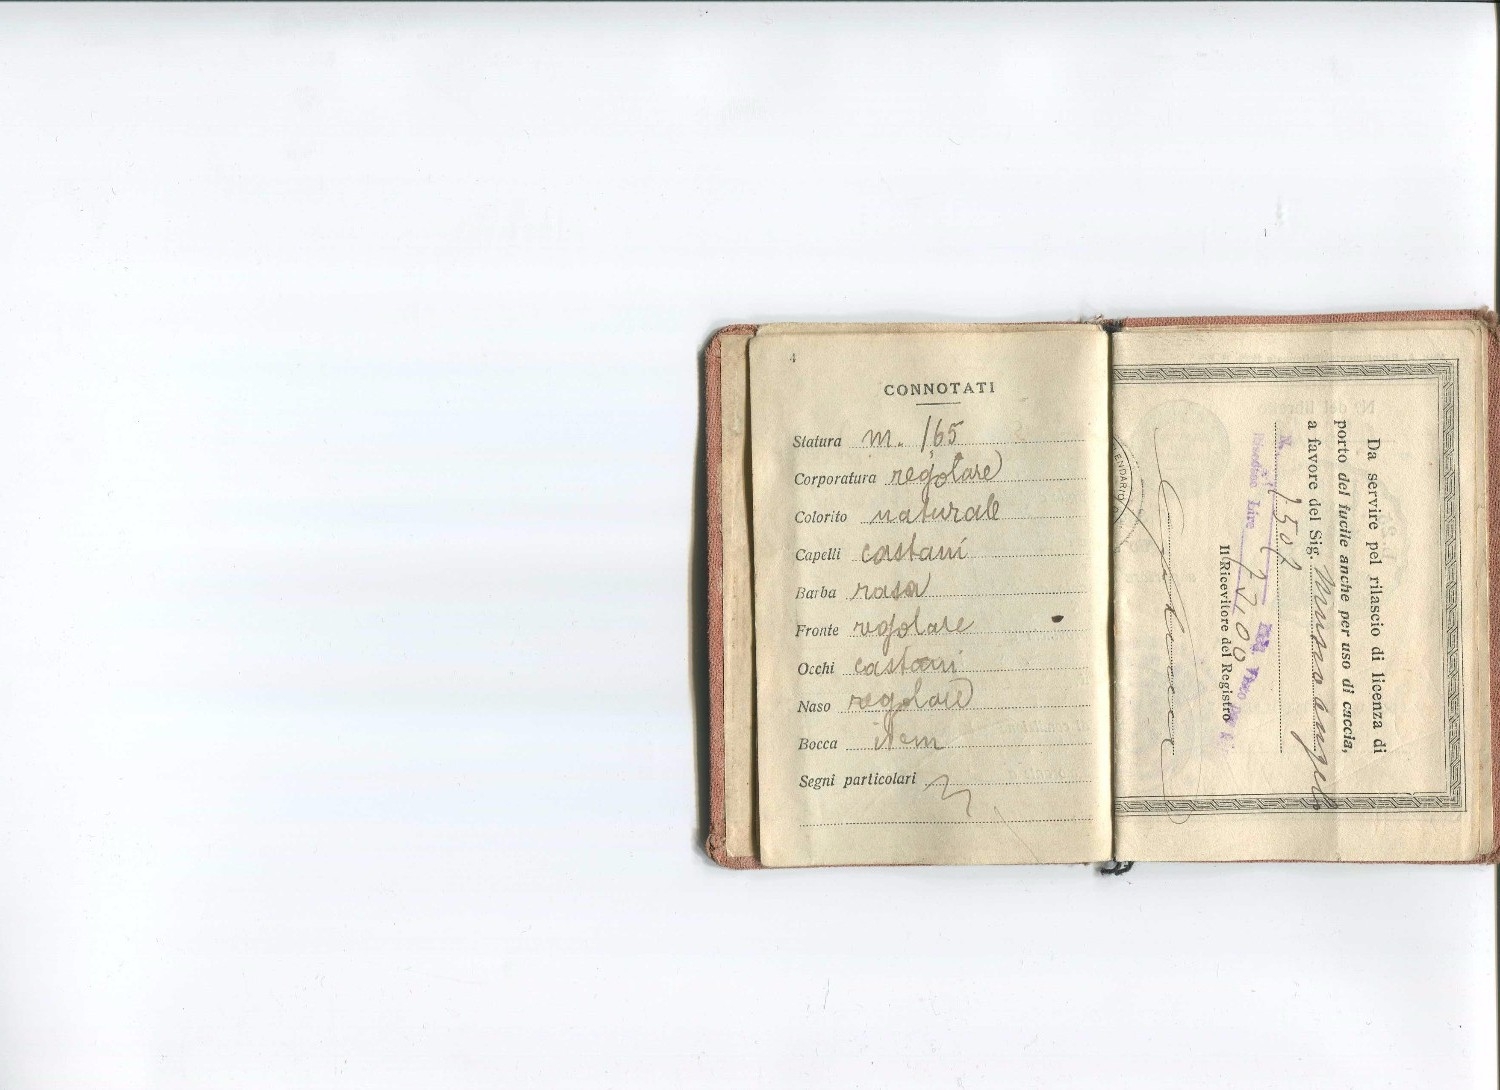 4
CONNOTATI
Statura m. 1,65
Corporatura regolare
Colorito naturale
Capelli castani
Barba rasa
Fronte regolare
Occhi castani
Naso regolare
Bocca item
Segni particolari
Da servire pel rilascio di licenza di
porto del fucile anche per uso di caccia,
a favore del Sig. Musso Angelo
N.
Lire
Il Ricevitore del Registro